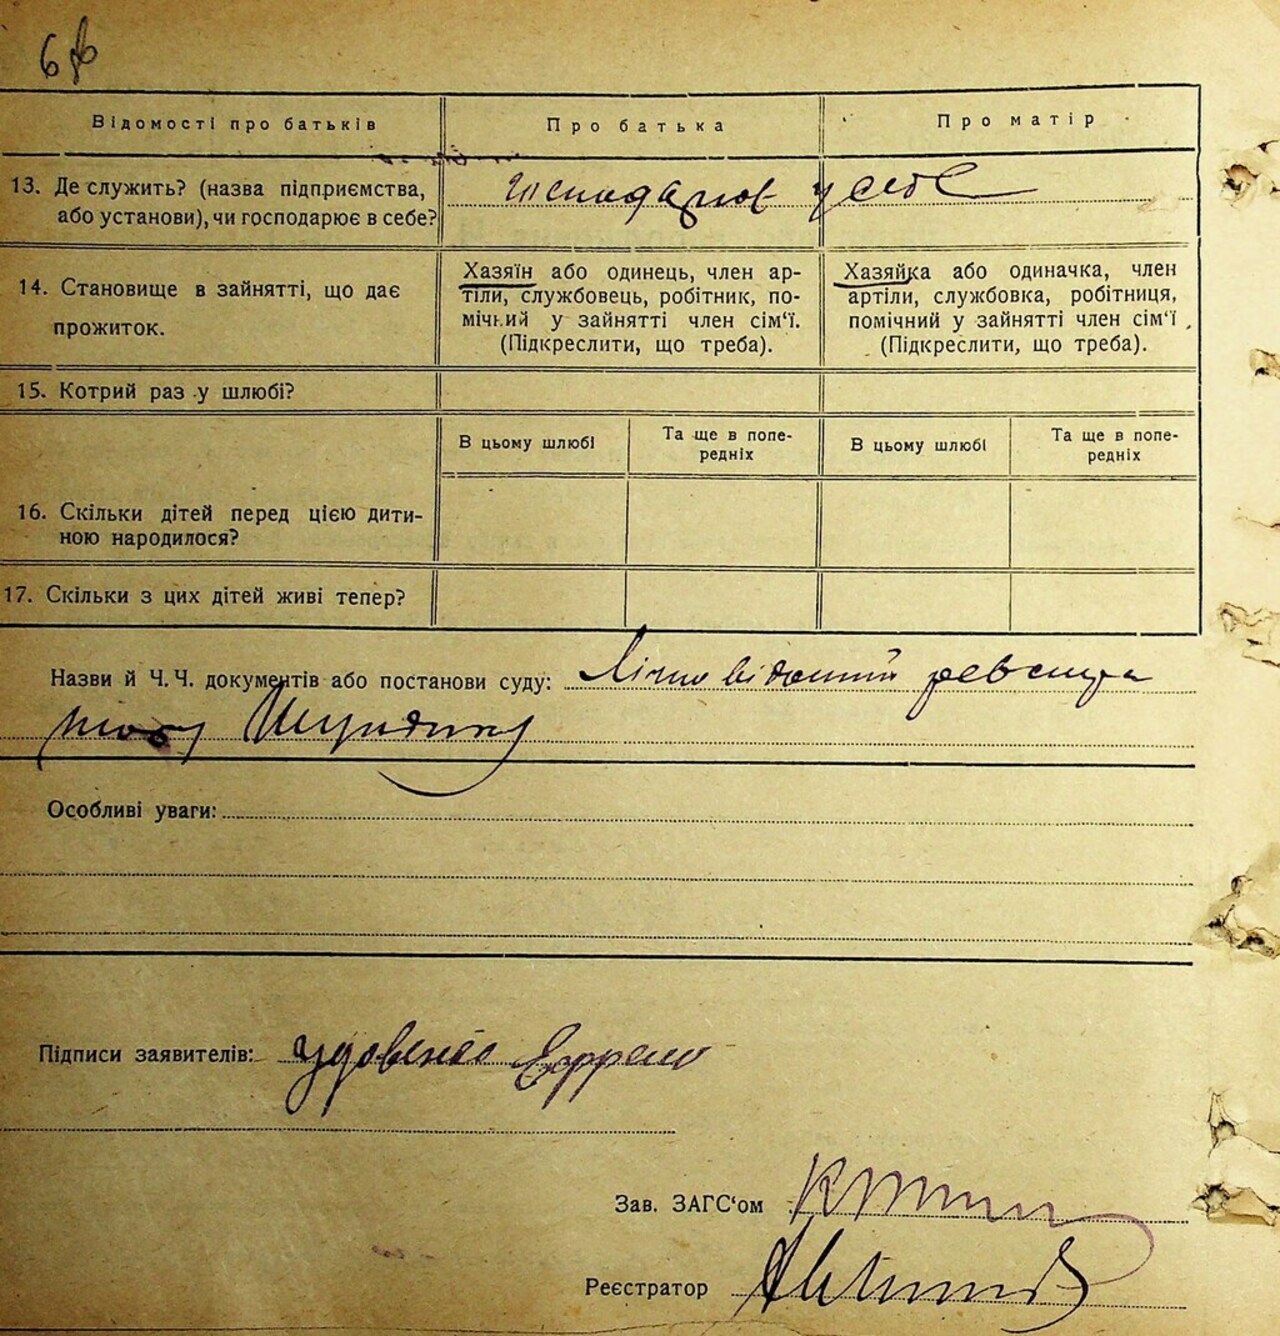 Відомості про батьків
Про батька
Про матір
13. Де служить? (назва підприємства,
або установи), чи господарює в себе?
господарює у себе
14. Становище в зайнятті, що дає
прожиток.
Хазяїн або одинець, член ар-
тіли, службовець, робітник, по-
мічний у зайнятті член сім‘ї.
(Підкреслити, що треба).
Хазяйка або одиначка, член
артіли, службовка, робітниця,
помічний у зайнятті член сім‘ї
(Підкреслити, що треба).
15. Котрий раз у шлюбі?
В цьому шлюбі
Та ще в попе-
редніх
В цьому шлюбі
Та ще в попе-
редніх
16. Скільки дітей перед цією дити-
ною народилося?
17. Скільки з цих дітей живі тепер?
Назви й Ч. Ч. документів або постанови суду: Лічно відомий
Особливі уваги:
Підписи заявителів: Удовенко
Зав. ЗАГС‘ом
Реєстратор